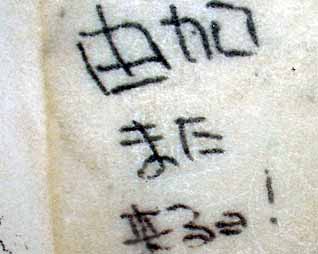 由加
また
来るヨ!